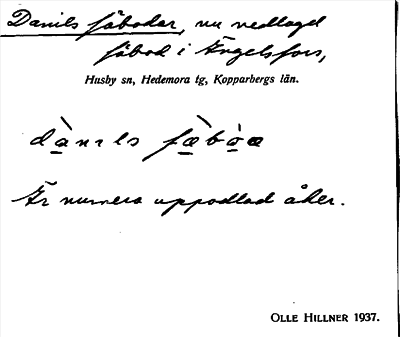 Danils fäbodar, nu nedlagd
fäbod i Ängelsfors,
Husby sn, Hedemora tg, Kopparbergs län.
dànils fæ̀bòæ
Är numera uppodlad åker.
OLLE HILLNER 1937.